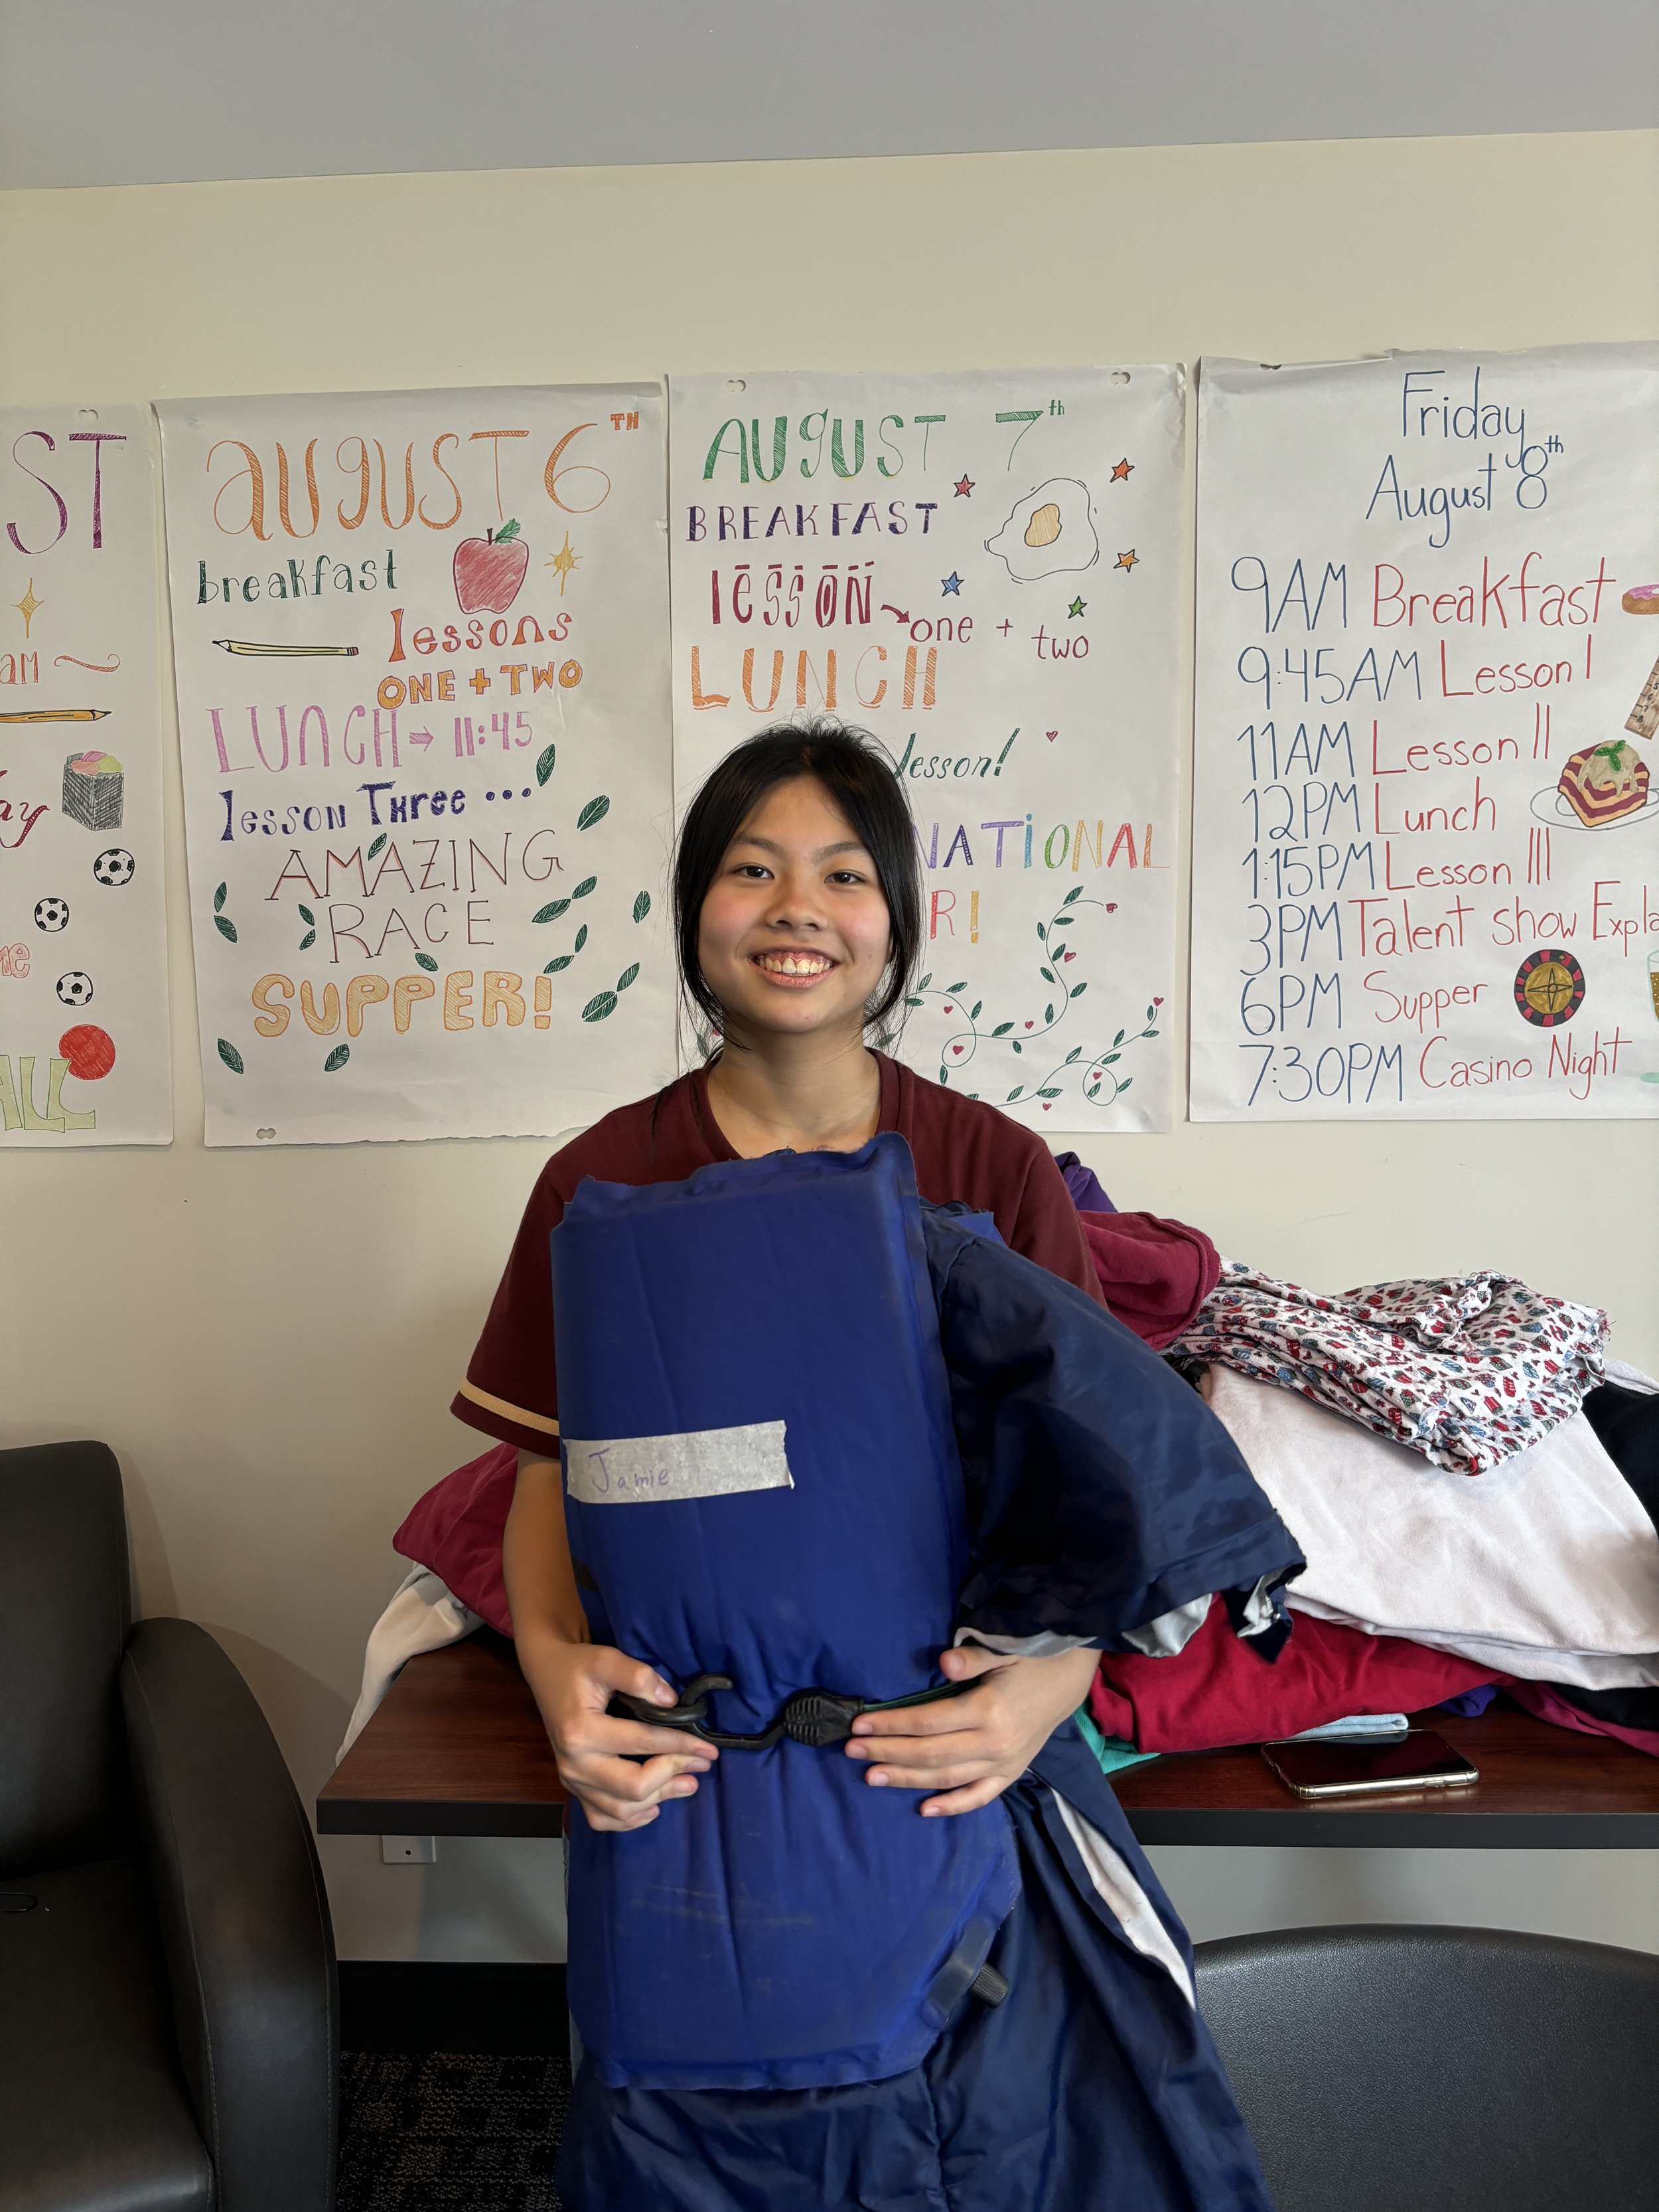 ST
am
ay
me
ALL
AUGUST 6TH
breakfast
lessons
ONE + TWO
LUNCH → 11:45
lesson Three ...
AMAZING
RACE
SUPPER!
AUGUST 7th
BREAKFAST
lesson → one + two
LUNCH
lesson!
NATIONAL
R!
Friday
August 8th
9AM Breakfast
9:45AM Lesson I
11AM Lesson II
12PM Lunch
1:15PM Lesson III
3PM Talent show Expla
6PM Supper
7:30PM Casino Night
Jamie